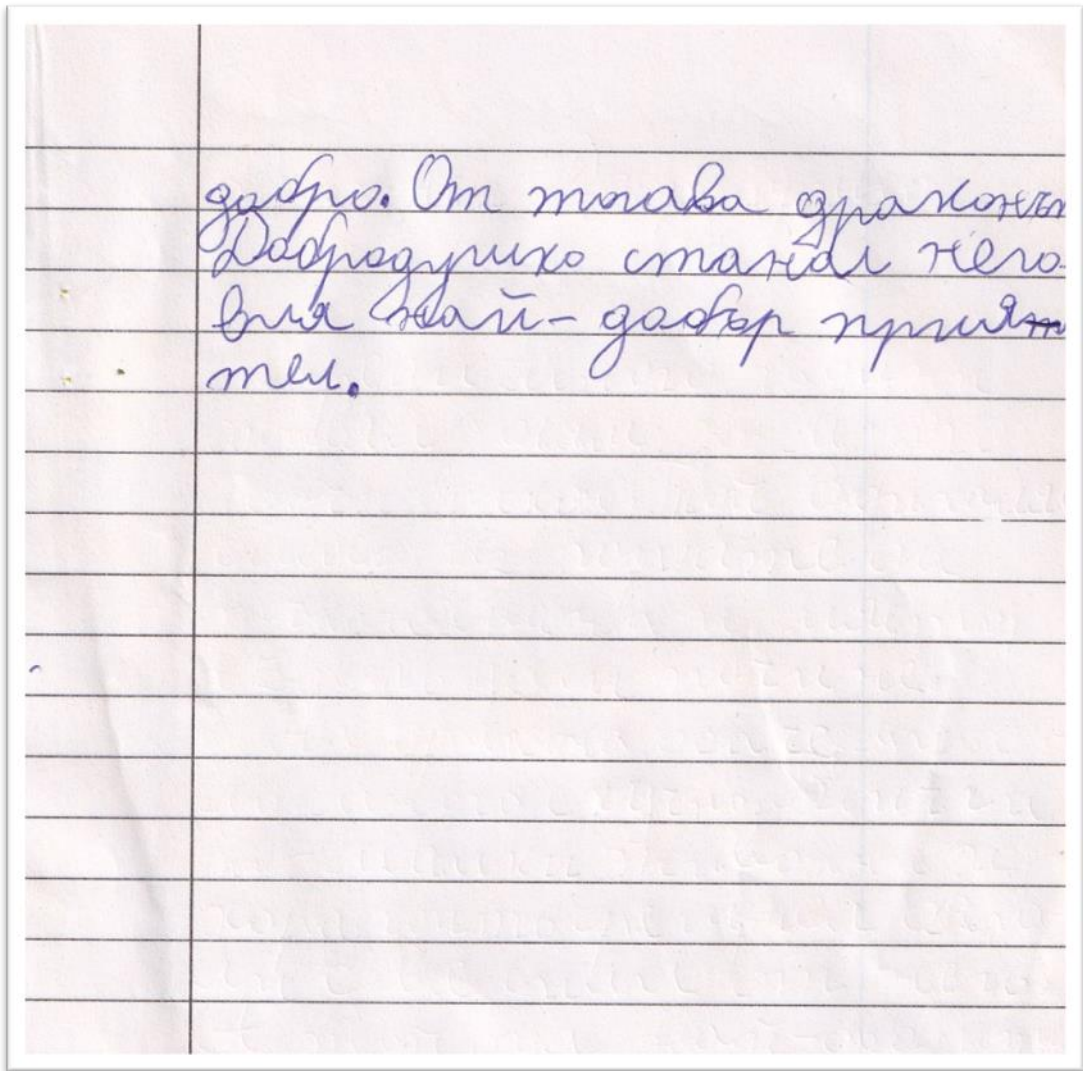 добро. От тогава драконът
Добродушко станал него-
вия най-добър прия
тел.